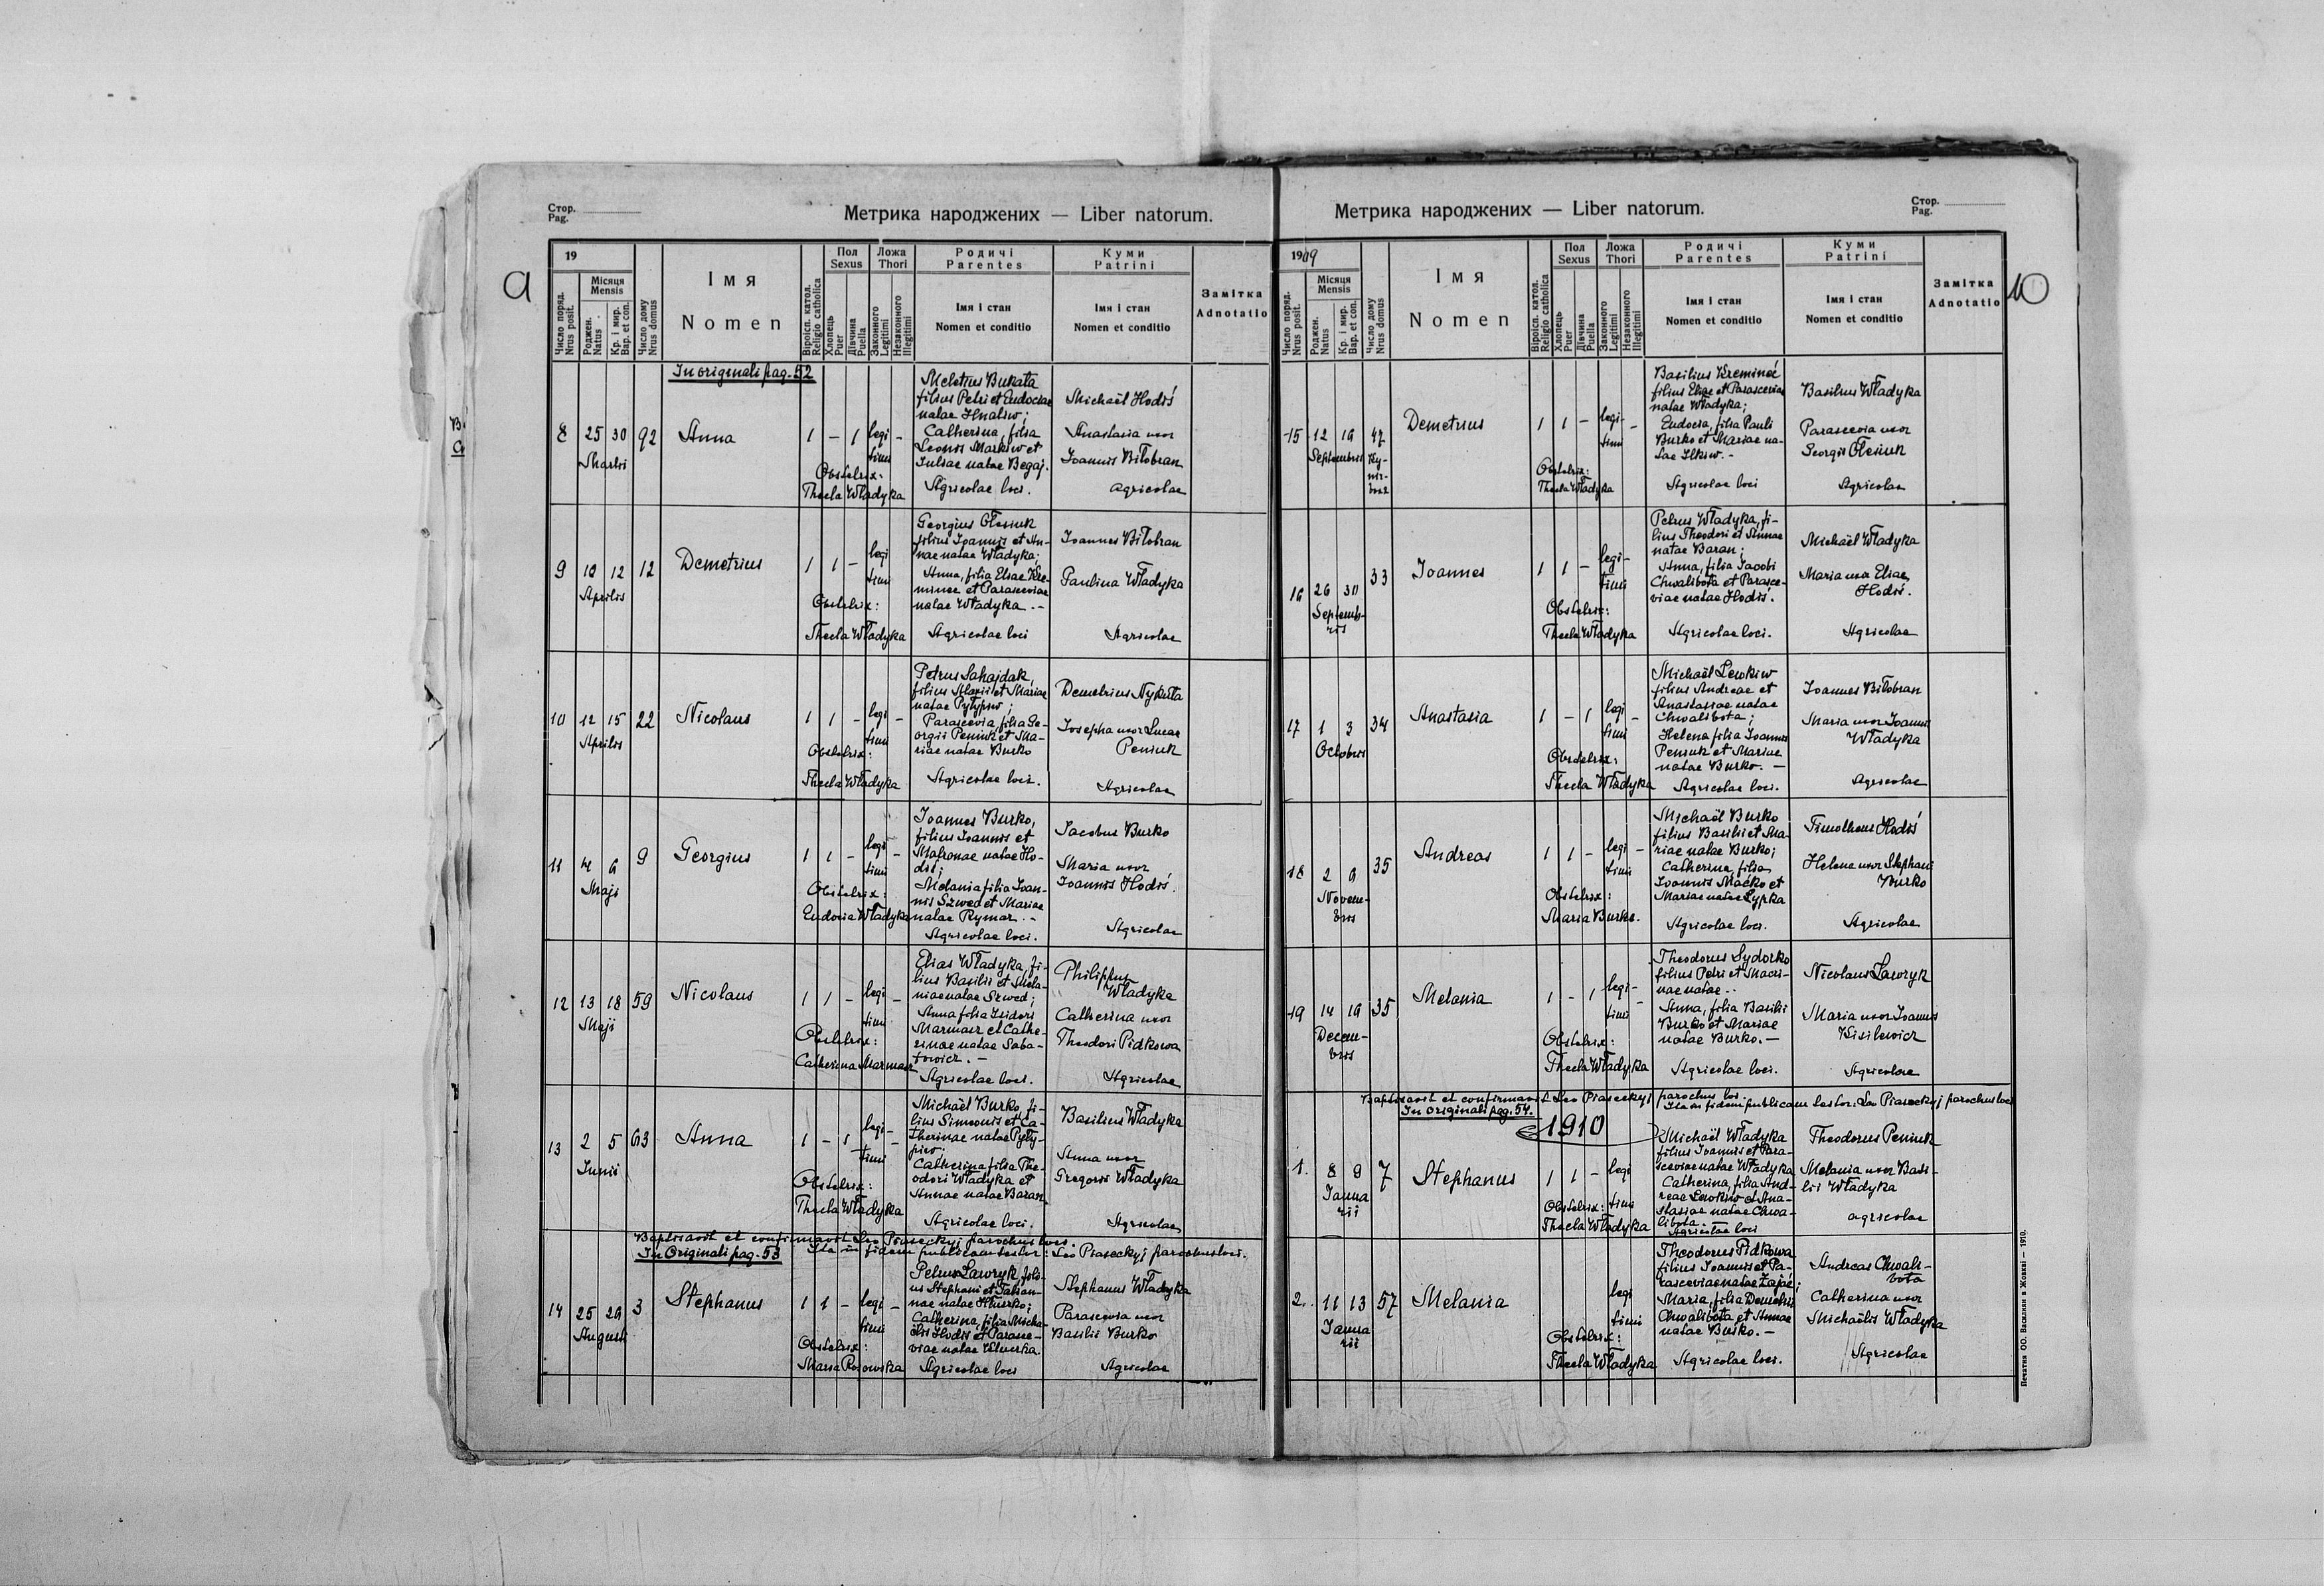 Стор.
Pag.
Метрика народжених — Liber natorum.
9
19
Число поряд.
Nrus posit.
Місяця
Mensis
Роджен.
Natus
Кр. і мир.
Bap. et con.
Число дому
Nrus domus
Імя
Nomen
Віроісп. катол.
Religio catholica
Пол
Sexus
Хлопець
Puer
Дівчина
Puella
Ложа
Thori
Законного
Legitimi
Незаконного
Illegitimi
Родичі
Parentes
Імя і стан
Nomen et conditio
Куми
Patrini
Імя і стан
Nomen et conditio
Замітка
Adnotatio
In originali pag. 52
8 25 30 92 Anna 1 – 1 legi- –
Martii
timi
Obstetrix:
Thecla Władyka
Meletius Bukata
filius Petri et Eudociae
natae Hnatiw;
Catherina, filia
Leonis Markiw et
Juliae natae Begaj.
Agricolae loci.
Michaël Hodiś
Anastasia uxor
Joannis Biłobran
agricolae
9 10 12 12 Demetrius 1 1 – legi
Aprilis
timi
Obstetrix:
Thecla Władyka
Georgius Ołeniuk
filius Joannis et An-
nae natae Władyka;
Anna, filia Eliae Kre-
minee et Parasceviae
natae Władyka. –
Agricolae loci
Joannes Biłobran
Paulina Władyka
Agricolae
10 12 15 22 Nicolaus 1 1 – legi –
Aprilis
timi
Obstetrix:
Thecla Władyka
Petrus Sahajdak,
filius Alexii et Mariae
natae Pyłypiw;
Parascevia, filia Ge-
orgii Peniuk et Ma-
riae natae Burko
Agricolae loci.
Demetrius Nykuta
Josepha uxor Lucae
Peniuk
Agricolae
11 4 6 9 Georgius 1 1 – legi –
Maji
timi
Obstetrix:
Eudocia Władyka
Joannes Burko,
filius Joannis et
Matronae natae Ho-
diś;
Melania filia Joan-
nis Szwed et Mariae
natae Rymar. –
Agricolae loci.
Jacobus Burko
Maria uxor
Joannis Hodiś.
Agricolae
12 13 18 59 Nicolaus 1 1 – legi –
Maji
timi
Obstetrix:
Catherina Marmasz
Elias Władyka, fi-
lius Basilii et Mela-
niae natae Szwed;
Anna filia Isidori
Marmasz et Cathe-
rinae natae Saba-
towicz. –
Agricolae loci.
Philippus
Władyka
Catherina uxor
Theodori Pidkowa
Agricolae
13 2 5 63 Anna 1 – 1 legi- –
Junii
timi
Obstetrix:
Thecla Władyka
Michaël Burko, fi-
lius Simeonis et Ca-
therinae natae Pyły-
piw;
Catherina filia The-
odori Władyka et
Annae natae Baran.
Agricolae loci.
Basilius Władyka
Anna uxor
Gregorii Władyka
Agricolae
Baptisavit et confirmavit Leo Piaseckyj parochus loci.
In Originali pag. 53 Ita in fidem publicam testor: Leo Piaseckyj parochus loci.
14 25 29 3 Stephanus 1 1 – legi –
Augusti
timi
Obstetrix:
Maria Rosowska
Petrus Ławryk, fili-
us Stephani et Tatian-
nae natae
Catherina, filia Micha-
ëlis Hodiś et Parasce-
viae natae
Agricolae loci
Stephanus Władyka
Parascevia uxor
Basilii Burko
Agricolae
Стор.
Pag.
Метрика народжених — Liber natorum.
10
1909
Число поряд.
Nrus posit.
Місяця
Mensis
Роджен.
Natus
Кр. і мир.
Bap. et con.
Число дому
Nrus domus
Імя
Nomen
Віроісп. катол.
Religio catholica
Пол
Sexus
Хлопець
Puer
Дівчина
Puella
Ложа
Thori
Законного
Legitimi
Незаконного
Illegitimi
Родичі
Parentes
Імя і стан
Nomen et conditio
Куми
Patrini
Імя і стан
Nomen et conditio
Замітка
Adnotatio
15 12 19 47 Demetrius 1 1 – legi- –
Septembris
timi
Obstetrix:
Thecla Władyka
Basilius Kreminoé
filius Eliae et Parasceviae
natae Władyka;
Eudocia, filia Pauli
Burko et Mariae na-
tae Ilkiw. –
Agricolae loci
Basilius Władyka
Parascevia uxor
Georgii Ołeniuk
Agricolae
16 26 30 33 Joannes 1 1 – legi –
Septemb-
ris
timi
Obstetrix:
Thecla Władyka
Petrus Władyka, fi-
lius Theodori et Annae
natae Baran;
Anna, filia Jacobi
Chwalibota et Parasce-
viae natae Hodiś.
Agricolae loci.
Michaël Władyka
Maria uxor Eliae
Hodiś.
Agricolae
17 1 3 34 Anastasia 1 – 1 legi –
Octobris
timi
Obstetrix:
Thecla Władyka
Michaël Lewkiw
filius Andreae et
Anastasiae natae
Chwalibota;
Helena filia Joannis
Peniuk et Mariae
natae Burko. –
Agricolae loci.
Joannes Biłobran
Maria uxor Joannis
Władyka
Agricolae
18 2 9 35 Andreas 1 1 – legi –
Novem-
bris
timi
Obstetrix:
Maria Burko.
Michaël Burko
filius Basilii et Ma-
riae natae Burko;
Catherina, filia
Joannis Maćko et
Mariae natae Łypka
Agricolae loci.
Timotheus Hodiś
Helena uxor Stephani
Burko
Agricolae
19 14 19 35 Melania 1 – 1 legi –
Decem-
bris
timi
Obstetrix:
Thecla Władyka
Theodorus Sydorko
filius Petri et Macri-
nae natae..
Anna, filia Basilii
Burko et Mariae
natae Burko. –
Agricolae loci.
Nicolaus Ławryk
Maria uxor Joannis
Kisilewicz
Agricolae
Baptisavit et confirmavit Leo Piaseckyj parochus loci.
In originali pag. 54. Ita in fidem publicam testor: Leo Piaseckyj parochus loci
1910
1. 8 9 7 Stephanus 1 1 – legi
Janua
rii
timi
Obstetrix:
Thecla Władyka
Michaël Władyka
filius Joannis et Para-
sceviae natae Władyka
Catherina, filia And-
reae Lewkiw et Ana-
stasiae natae Chwa-
libota.
Agricolae loci
Theodorus Peniuk
Melania uxor Basi-
lii Władyka
agricolae
2. 11 13 57 Melania legi
Janua
rii
timi
Obstetrix:
Thecla Władyka
Theodorus Pidkowa
filius Joannis et Pa-
rasceviae natae Zajać;
Maria, filia Demetrii
Chwalibota et Annae
natae Burko. –
Agricolae loci.
Andreas Chwali-
bota
Catherina uxor
Michaëlis Władyka
Agricolae
Печатня ОО. Василіян в Жовкві — 1910.